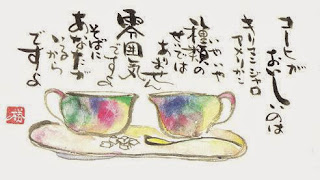 コーヒーが
おいしいのは
キリマンジャロ
アメリカン
いやいや
種類の
せいでは
ありません
雰囲気
ですよ
そばに
あなたが
いるから
ですよ
勝